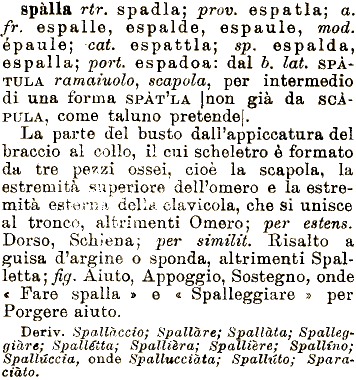 spàlla rtr. spadla; prov. espatla; a.
fr. espalle, espalde, espaule, mod.
épaule; cat. espattla; sp. espalda,
espalla; port. espadoa: dal b. lat. SPÀ-
TULA ramaiuolo, scapola, per intermedio
di una forma SPÀT'LA |non già da SCÀ-
PULA, come taluno pretende|.
La parte del busto dall'appiccatura del
braccio al collo, il cui scheletro è formato
da tre pezzi ossei, cioè la scapola, la
estremità superiore dell'omero e la estre-
mità esterna della clavicola, che si unisce
al tronco, altrimenti Omero; per estens.
Dorso, Schiena; per similit. Risalto a
guisa d'argine o sponda, altrimenti Spal-
letta; fig. Aiuto, Appoggio, Sostegno, onde
« Fare spalla » e « Spalleggiare » per
Porgere aiuto.
Deriv. Spallàccio; Spallàre; Spallàta; Spalleg-
giàre; Spallétta; Spallièra; Spallière; Spallíno;
Spallúccia, onde Spallucciàta; Spallúto; Spara-
ciàto.